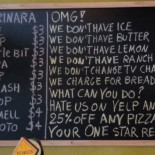 CINARA
$3
$3
TLE BIT $3
$3
$3
$3
$3
$3
$4
OMG!
WE DON'T HAVE ICE
WE DON'T HAVE BUTTER
WE DON'T HAVE LEMON
WE DON'T HAVE RANCH
WE DON'T CHANGE TV CHAN
WE CHARGE FOR BREAD
WHAT CAN YOU DO?
HATE US ON YELP AN
25% OFF ANY PIZZA
YOUR ONE STAR RE